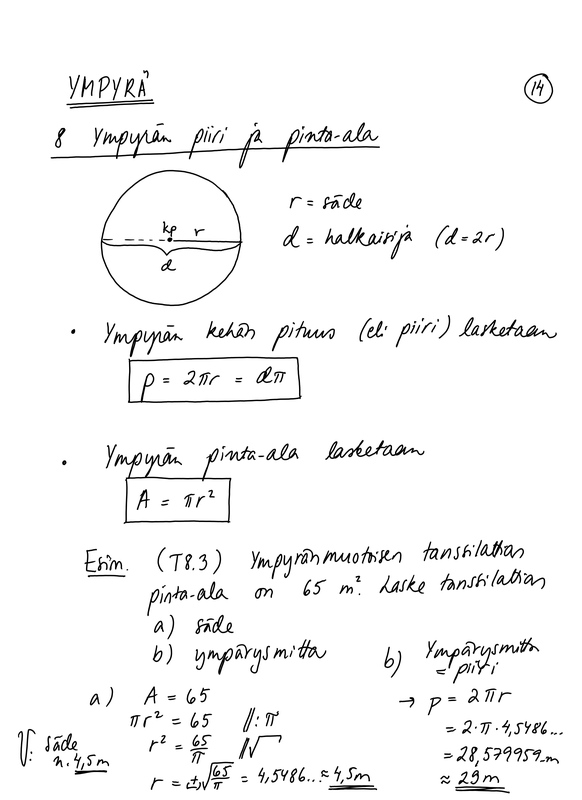 YMPYRÄ
14
8 Ympyrän piiri ja pinta-ala
kp r
d
r = säde
d = halkaisija (d=2r)
• Ympyrän kehän pituus (eli piiri) lasketaan
p = 2πr = dπ
• Ympyrän pinta-ala lasketaan
A = πr²
Esim. (T8.3) Ympyränmuotoisen tanssilattian
pinta-ala on 65 m². Laske tanssilattian
a) säde
b) ympärysmitta
a) A = 65
πr² = 65 ||: π
r² = 65/π ||√
r = (±)√(65/π) = 4,5486... ≈ 4,5m
V: säde
n. 4,5m
b) Ympärysmitta
= piiri
→ p = 2πr
= 2·π·4,5486...
= 28,579959..m
≈ 29m